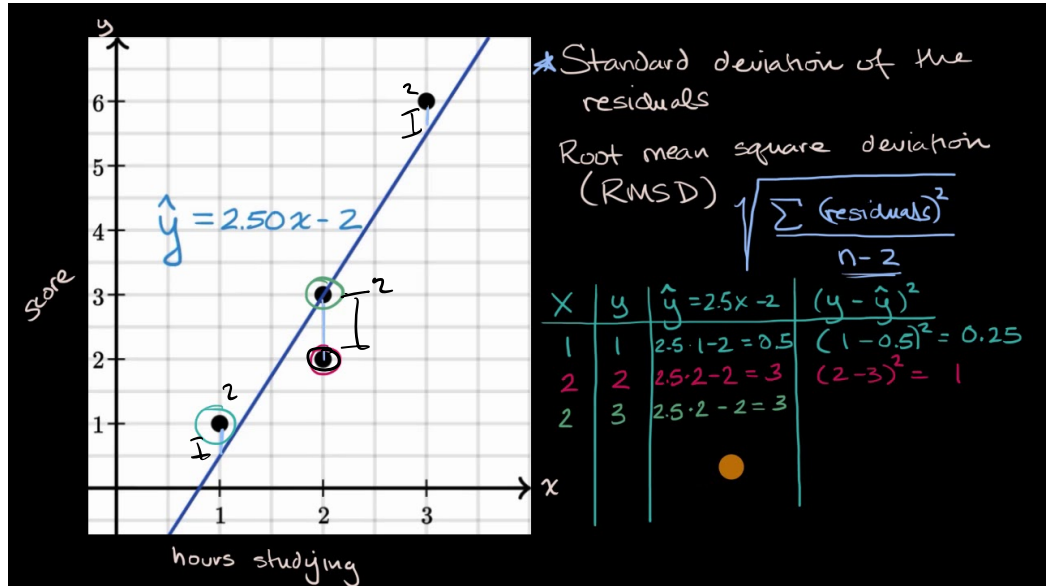 y
6
5
4
3
2
1
1 2 3
x
score
hours studying
ŷ = 2.50x - 2
2
2
2
* Standard deviation of the
residuals
Root mean square deviation
(RMSD) √
Σ (residuals)²
n-2
x | y | ŷ = 2.5x - 2 | (y - ŷ)²
1 | 1 | 2.5·1-2 = 0.5 | (1 - 0.5)² = 0.25
2 | 2 | 2.5·2-2 = 3 | (2-3)² = 1
2 | 3 | 2.5·2-2 = 3